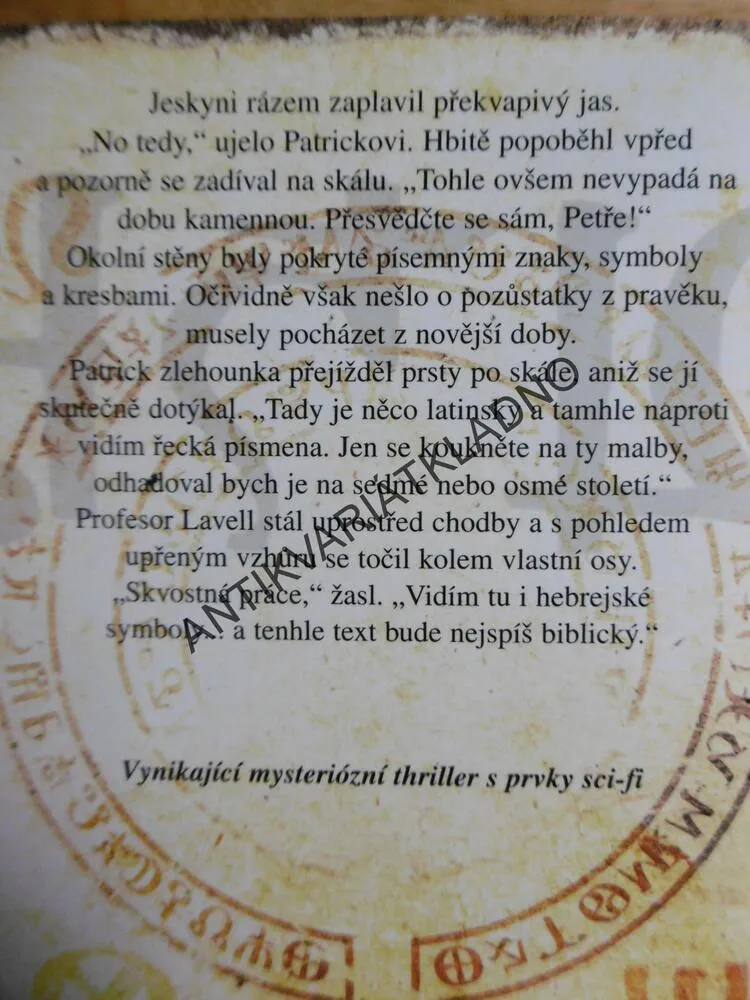 Jeskyni rázem zaplavil překvapivý jas.
„No tedy,“ ujelo Patrickovi. Hbitě popoběhl vpřed
a pozorně se zadíval na skálu. „Tohle ovšem nevypadá na
dobu kamennou. Přesvědčte se sám, Petře!“
Okolní stěny byly pokryté písemnými znaky, symboly
a kresbami. Očividně však nešlo o pozůstatky z pravěku,
musely pocházet z novější doby.
Patrick zlehounka přejížděl prsty po skále, aniž se jí
skutečně dotýkal. „Tady je něco latinsky a tamhle naproti
vidím řecká písmena. Jen se koukněte na ty malby,
odhadoval bych je na sedmé nebo osmé století.“
Profesor Lavell stál uprostřed chodby a s pohledem
upřeným vzhůru se točil kolem vlastní osy.
„Skvostná práce,“ žasl. „Vidím tu i hebrejské
symboly... a tenhle text bude nejspíš biblický.“
Vynikající mysteriózní thriller s prvky sci-fi
ANTIKVARIATKLADNO